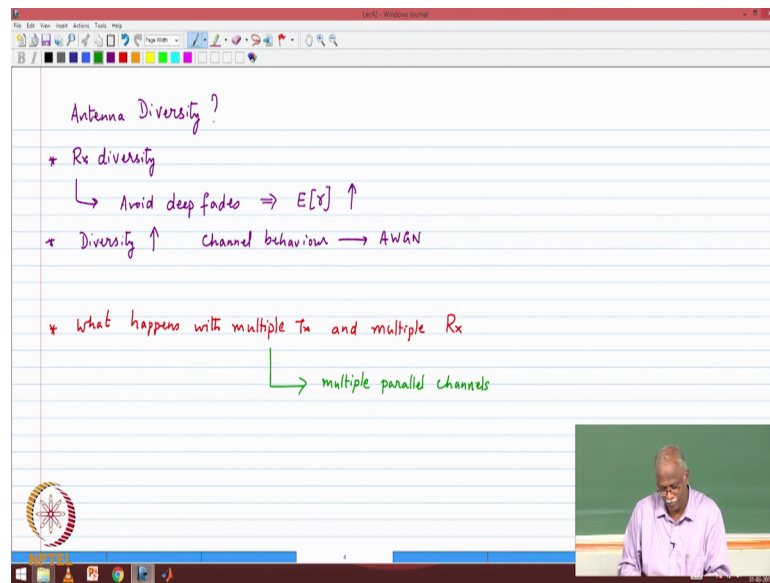 Lec42 - Windows Journal
File Edit View Insert Actions Tools Help
Page Width
B I
Antenna Diversity ?
* Rx diversity
↳ Avoid deep fades ⇒ E[γ] ↑
* Diversity ↑ Channel behaviour → AWGN
* What happens with multiple Tx and multiple Rx
↳ multiple parallel channels
NPTEL
4